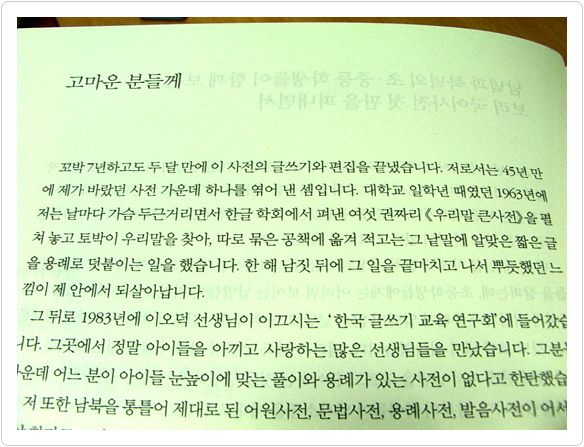 고마운 분들께
꼬박 7년하고도 두 달 만에 이 사전의 글쓰기와 편집을 끝냈습니다. 저로서는 45년 만
에 제가 바랐던 사전 가운데 하나를 엮어 낸 셈입니다. 대학교 일학년 때였던 1963년에
저는 날마다 가슴 두근거리면서 한글 학회에서 펴낸 여섯 권짜리 《우리말 큰사전》을 펼
쳐 놓고 토박이 우리말을 찾아, 따로 묶은 공책에 옮겨 적고는 그 낱말에 알맞은 짧은 글
을 용례로 덧붙이는 일을 했습니다. 한 해 남짓 뒤에 그 일을 끝마치고 나서 뿌듯했던 느
낌이 제 안에서 되살아납니다.
그 뒤로 1983년에 이오덕 선생님이 이끄시는 ‘한국 글쓰기 교육 연구회’에 들어갔습
니다. 그곳에서 정말 아이들을 아끼고 사랑하는 많은 선생님들을 만났습니다. 그분들
가운데 어느 분이 아이들 눈높이에 맞는 풀이와 용례가 있는 사전이 없다고 한탄했습
저 또한 남북을 통틀어 제대로 된 어원사전, 문법사전, 용례사전, 발음사전이 어서